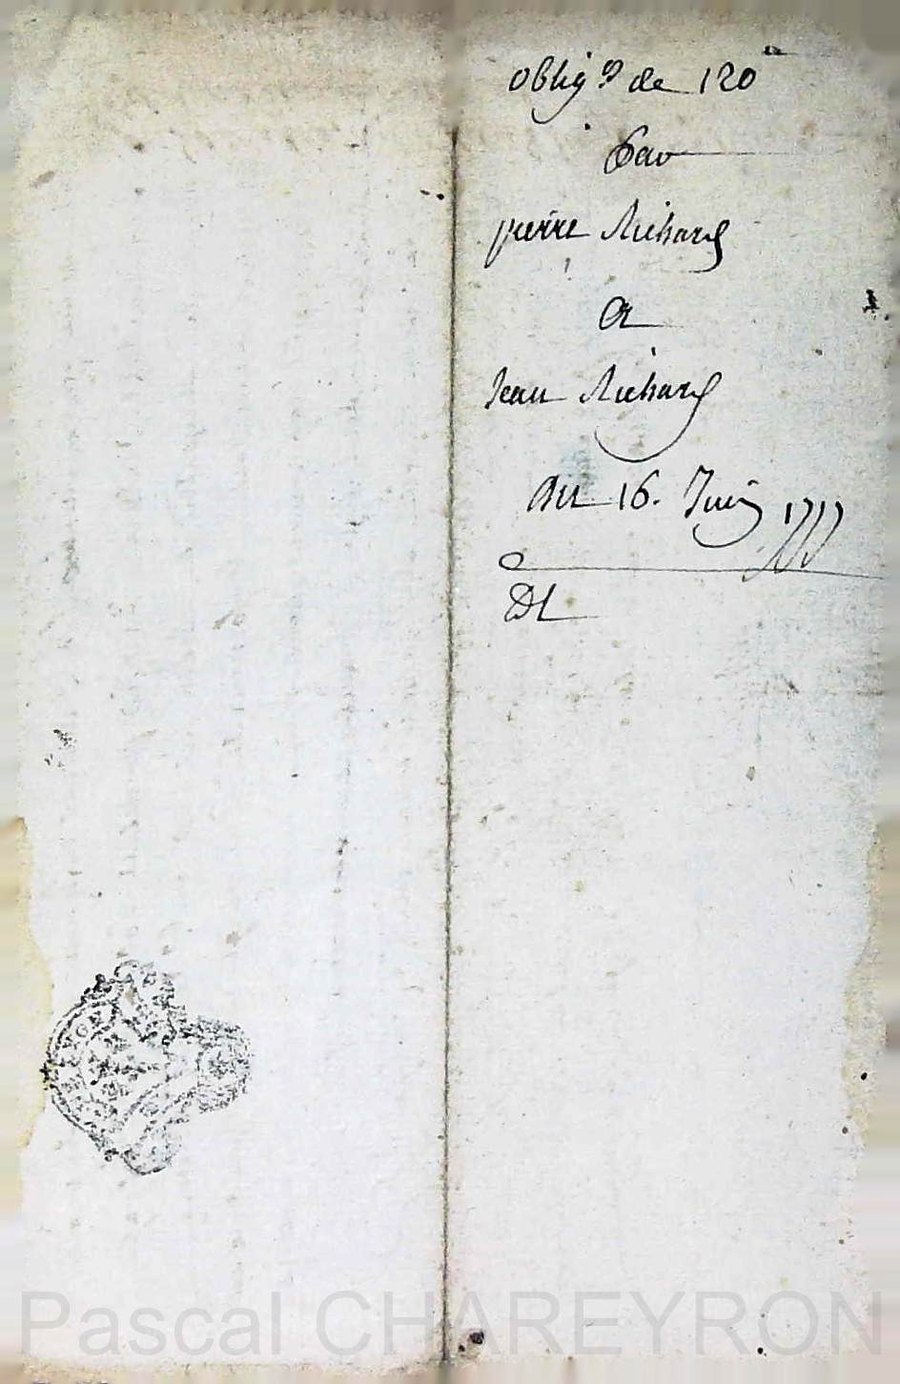 oblig.on de 120 tt
Par
pierre Richard
A
Jean Richard
Du 16. Juin 1777
DL
Pascal CHAREYRON